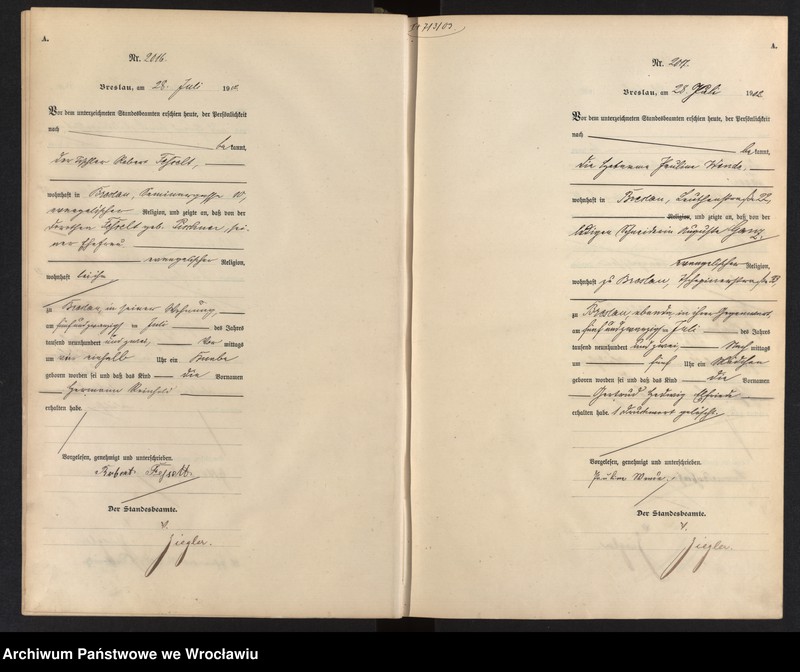 A.
Nr. 2016.
Breslau, am 28. Juli 1902
Vor dem unterzeichneten Standesbeamten erschien heute, der Persönlichkeit
nach
be kannt,
der Robert
wohnhaft in Breslau, 10,
evangelischer Religion, und zeigte an, daß von der
geb. sei-
ner Ehefrau
evangelischer Religion,
wohnhaft bei ihm
zu Breslau, in seiner Wohnung,
am fünfundzwanzigsten Juli des Jahres
tausend neunhundert und zwei, Vor mittags
um ein einhalb Uhr ein Knabe
geboren worden sei und daß das Kind die Vornamen
Hermann Reinhold
erhalten habe.
Vorgelesen, genehmigt und unterschrieben.
Robert
Der Standesbeamte.
V.
Ziegler.
713/03.
A.
Nr. 2017.
Breslau, am 28. Juli 1902
Vor dem unterzeichneten Standesbeamten erschien heute, der Persönlichkeit
nach
be kannt,
die Hebamme Pauline Wende,
wohnhaft in Breslau, Leuthenstraße 22,
Religion, und zeigte an, daß von der
ledigen Schneiderin Auguste
evangelischer Religion,
wohnhaft zu Breslau,
zu Breslau, ebenda, in ihrer Gegenwart,
am fünfundzwanzigsten Juli des Jahres
tausend neunhundert und zwei, Nach mittags
um fünf Uhr ein Mädchen
geboren worden sei und daß das Kind die Vornamen
Gertrud Hedwig Elfriede
erhalten habe. 1 Druckwort gelöscht.
Vorgelesen, genehmigt und unterschrieben.
Pauline Wende
Der Standesbeamte.
V.
Ziegler.
Archiwum Państwowe we Wrocławiu